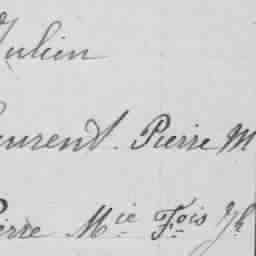 Julien
Laurent. Pierre M
Pierre Mie Fois Jh